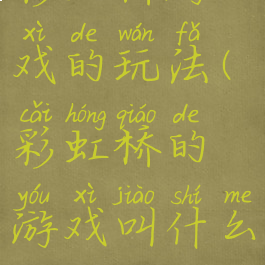 xì de wán fǎ
戏的玩法(
cǎi hóng qiáo de
彩虹桥的
yóu xì jiào shí me
游戏叫什么